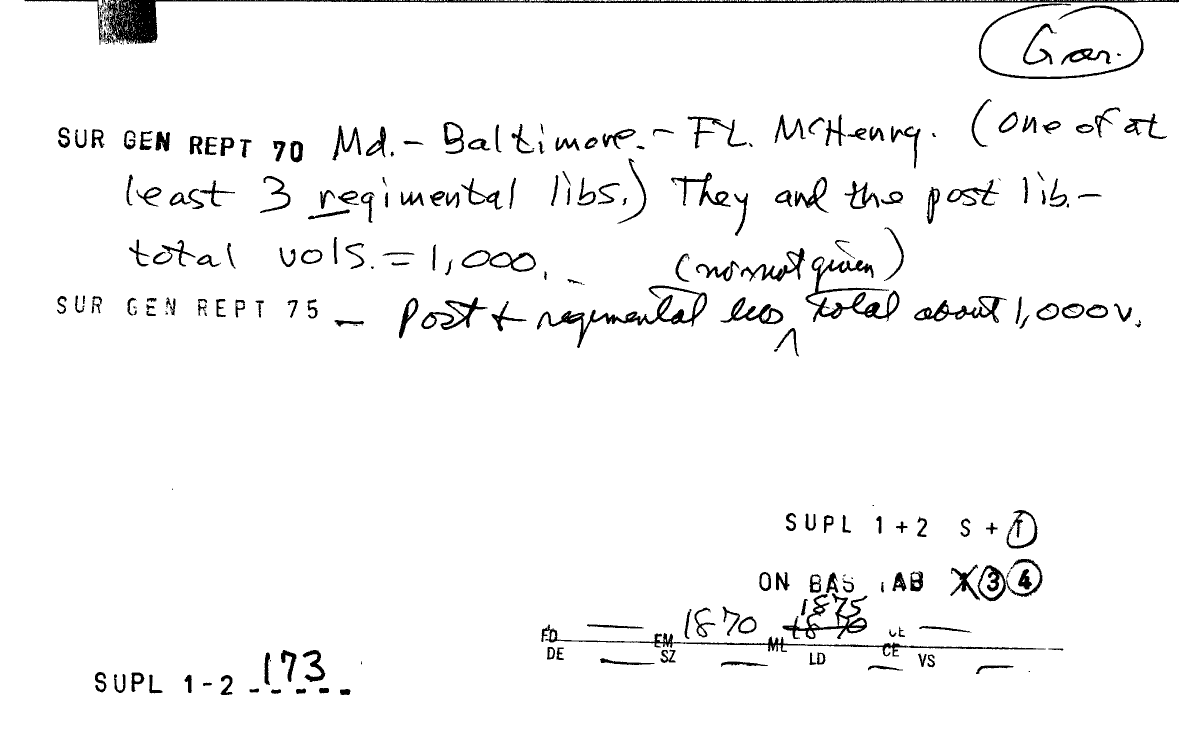 Gar.
SUR GEN REPT 70 Md. - Baltimore. - Ft. McHenry. (One of at
least 3 regimental libs.) They and the post lib. -
total vols. = 1,000. - (no not given)
SUR GEN REPT 75 - Post + regimental libs total about 1,000 v.
SUPL 1+2 S + 1
ON BAS TAB X 3 4
1875
FD — EM 1870 ML 1870 CE —
DE — SZ — LD CE — VS —
SUPL 1-2 173